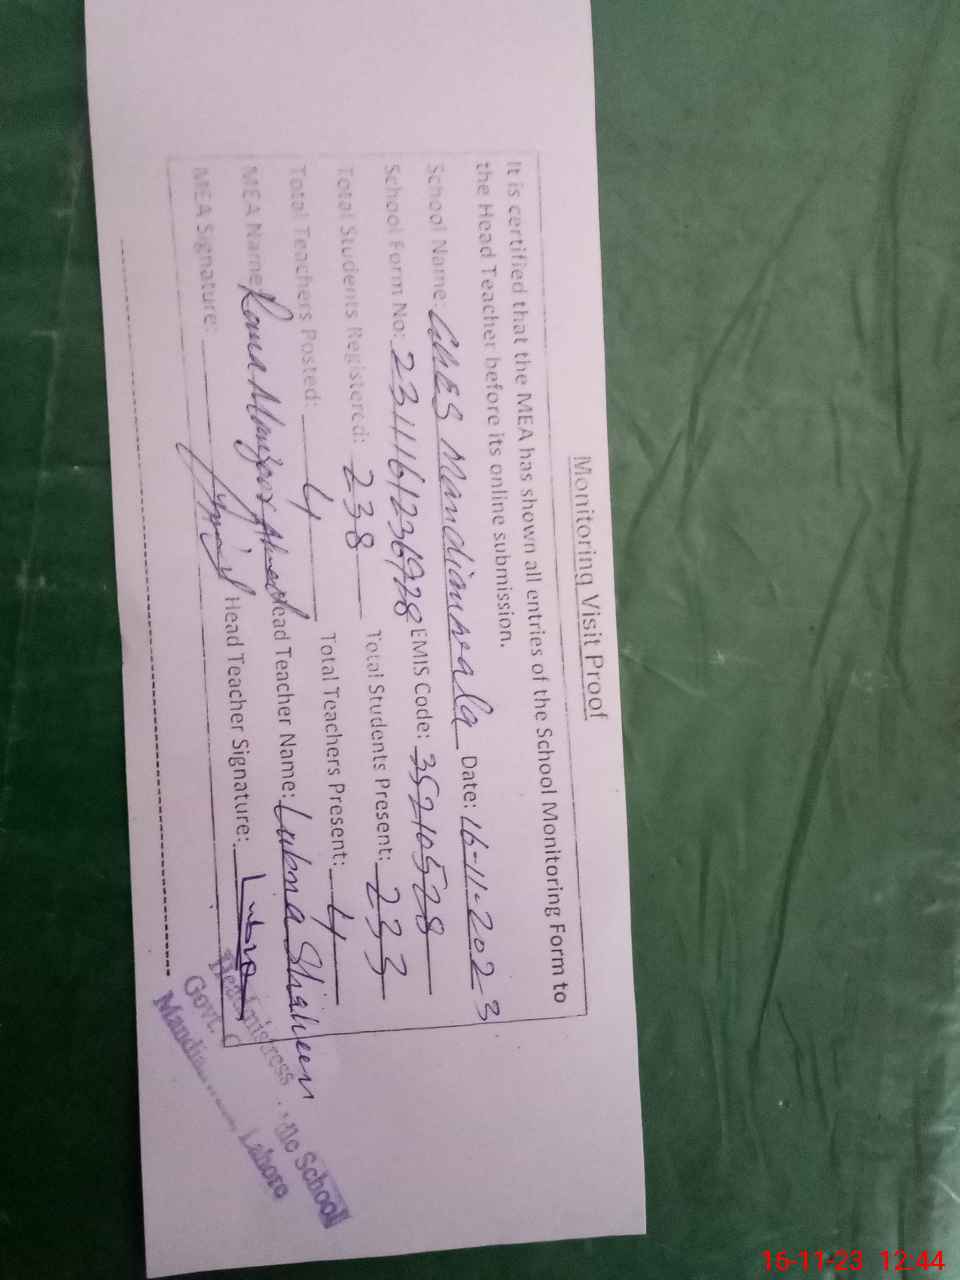 Monitoring Visit Proof
It is certified that the MEA has shown all entries of the School Monitoring Form to
the Head Teacher before its online submission.
School Name: GGES Mandianwala Date: 16-11-2023
School Form No: EMIS Code: 35210528
Total Students Registered: 238 Total Students Present: 233
Total Teachers Posted: 4 Total Teachers Present: 4
MEA Name: Rana Manzoor Ahmed Head Teacher Name: Lubna Shaheen
MEA Signature: Head Teacher Signature: Lubna
Headmistress
Govt. School
Lahore
16-11-23 12:44